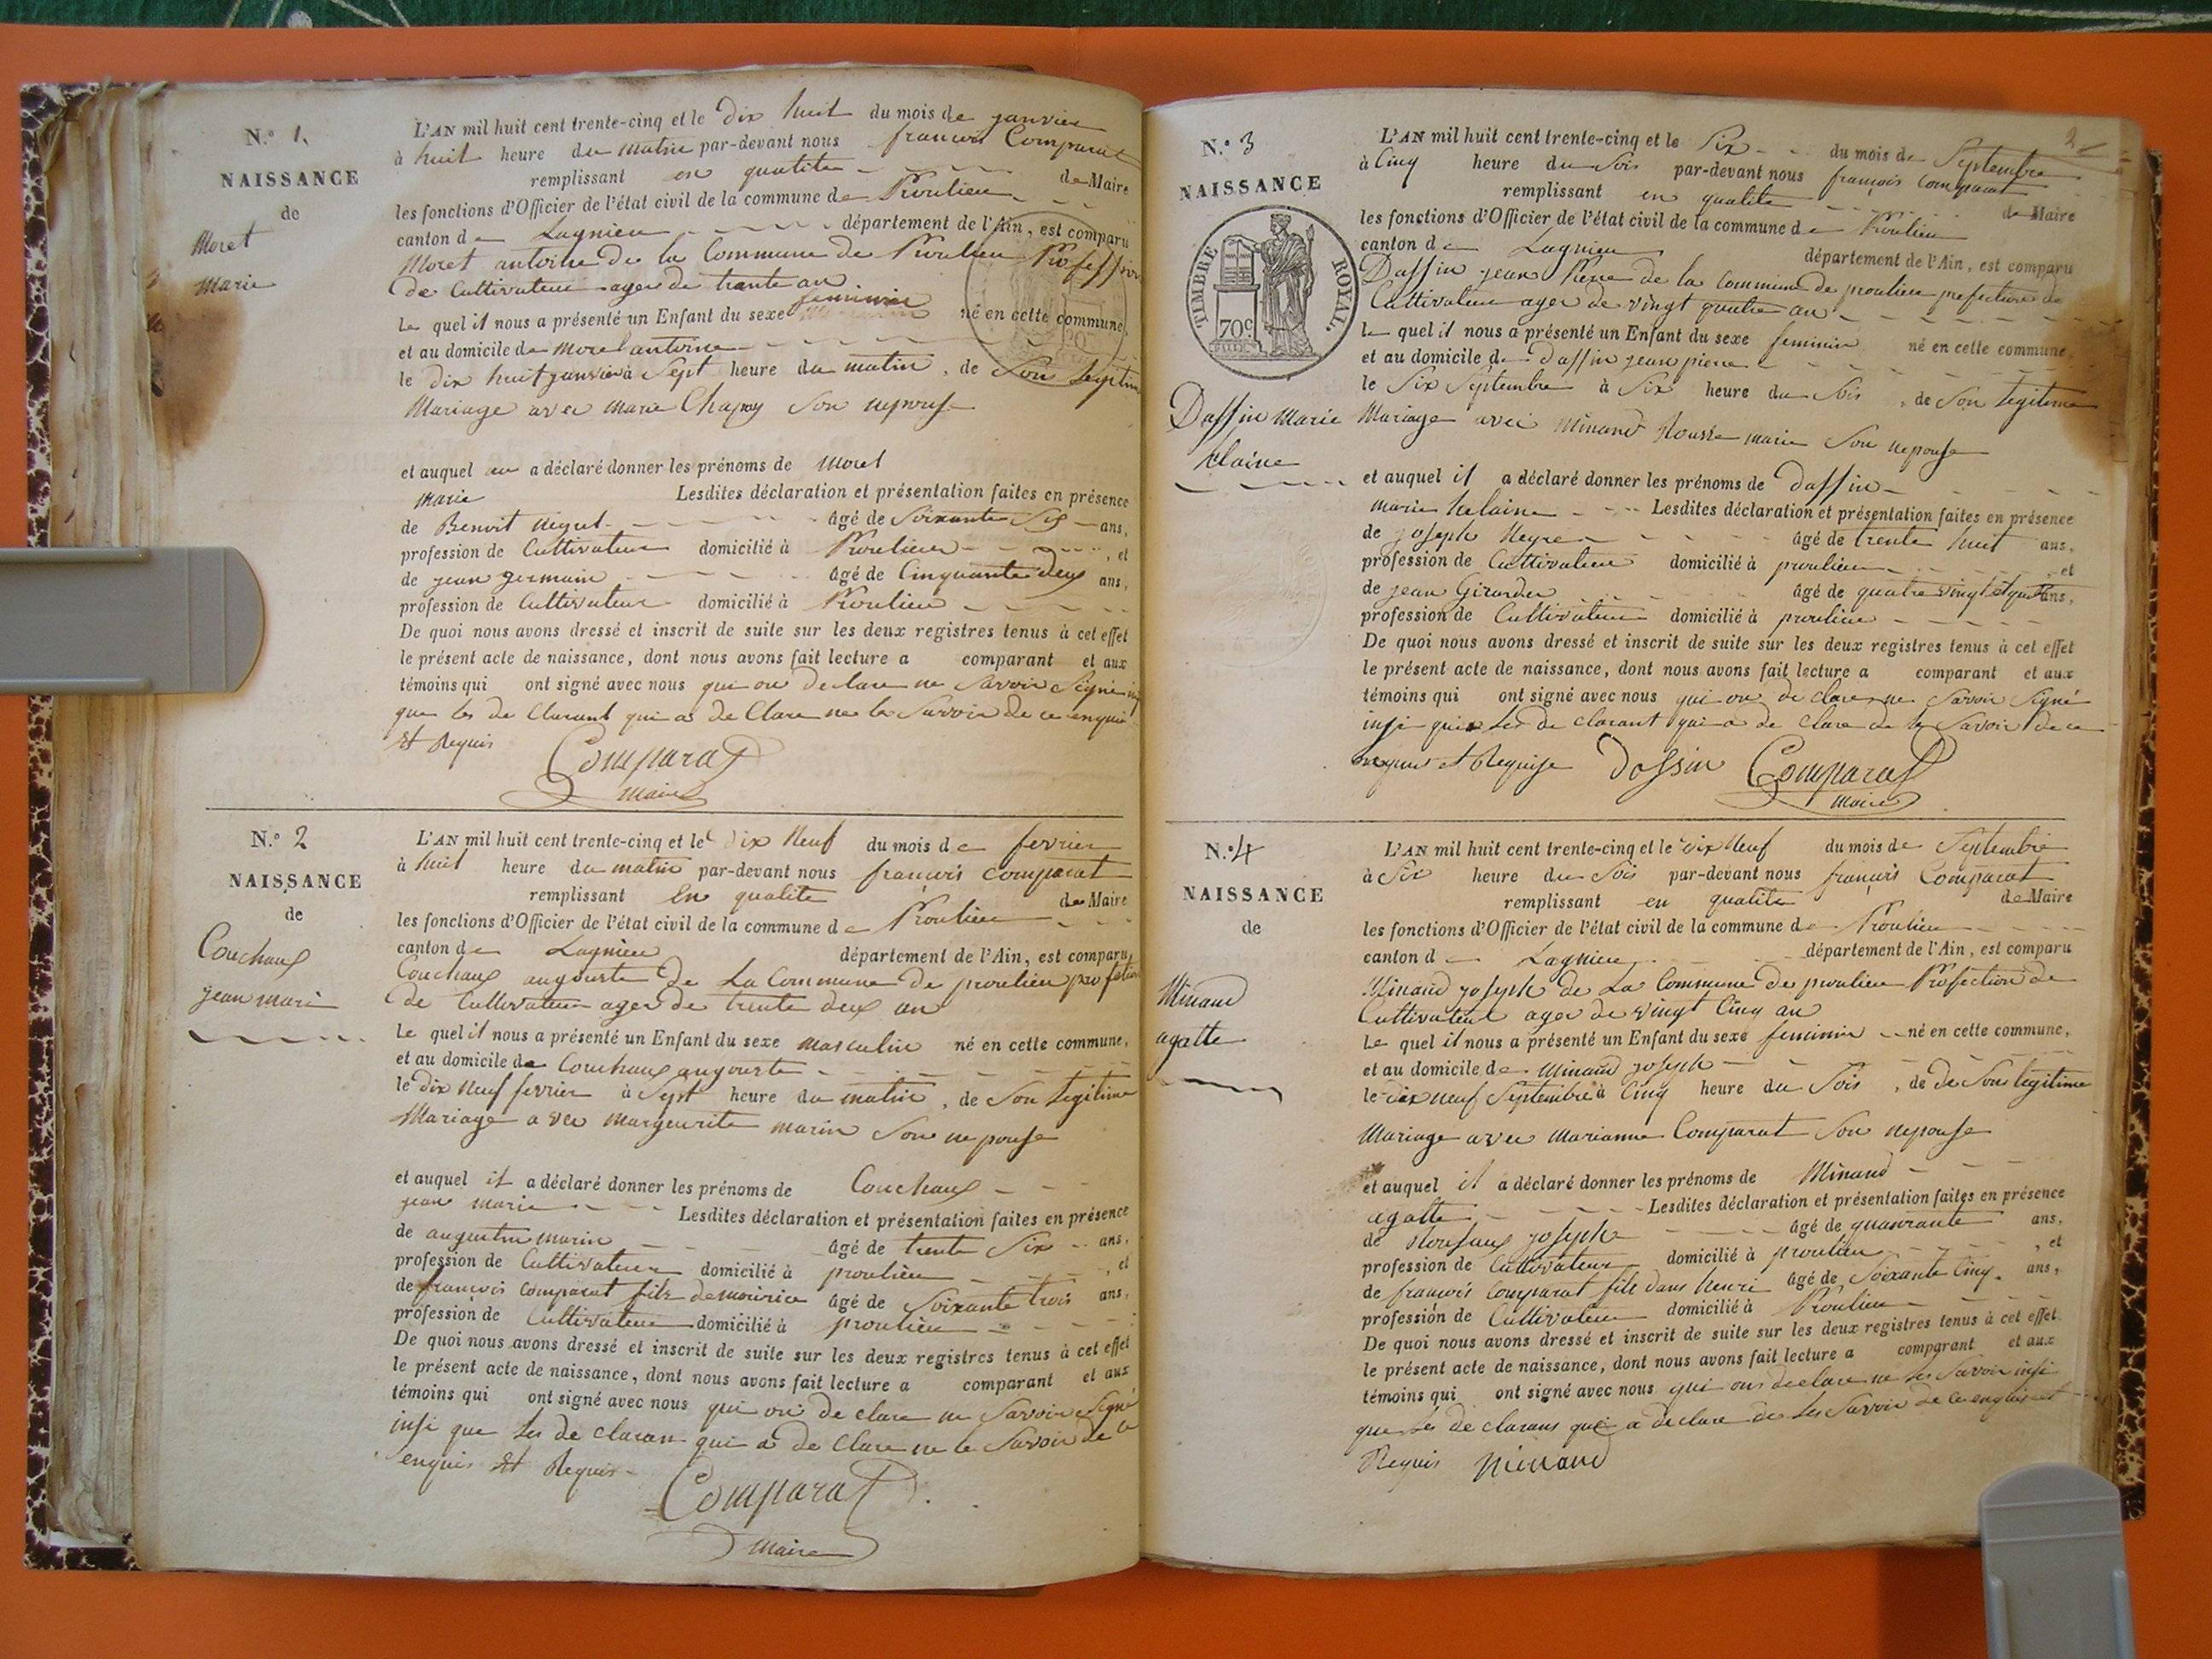 N.º 1.
NAISSANCE
de
Moret
Marie
L'AN mil huit cent trente-cinq et le Dix huit du mois de janvier
à huit heure du matin par-devant nous francois Comparat
remplissant en qualite de Maire
les fonctions d'Officier de l'état civil de la commune de Proulieu
canton de Lagnieu département de l'Ain, est comparu
Moret antoine De la Commune de Proulieu Profession
de Cultivateur ager de trante an
Le quel il nous a présenté un Enfant du sexe feminin né en cette commune,
et au domicile de Moret antoine
le dix huit janvier à Sept heure du matin, de Son
Mariage avec marie Chapuy Son nepouse
et auquel a déclaré donner les prénoms de Moret
Marie Lesdites déclaration et présentation faites en présence
de Benoit âgé de Soixante Six ans,
profession de Cultivateur domicilié à Proulieu, et
de jean germain âgé de Cinquante deux ans,
profession de Cultivateur domicilié à Proulieu
De quoi nous avons dressé et inscrit de suite sur les deux registres tenus à cet effet
le présent acte de naissance, dont nous avons fait lecture a comparant et aux
témoins qui ont signé avec nous qui on declare ne Savoir Signé
que les de Clarant qui a de Clare ne le Savoir de ce enquis
Et Requis Comparat
Maire
N.º 2
NAISSANCE
de
Couchoux
jean mari
L'AN mil huit cent trente-cinq et le Dix Neuf du mois de fevrier
à huit heure du matin par-devant nous francois Comparat
remplissant En qualite de Maire
les fonctions d'Officier de l'état civil de la commune de Proulieu
canton de Lagnieu département de l'Ain, est comparu
Couchoux angouste de La Commune de proulieu
de Cultivateur ager de trente deux an
Le quel il nous a présenté un Enfant du sexe masculin né en cette commune,
et au domicile de Couchoux angouste
le dix Neuf fevrier à Sept heure du matin, de Son Legitime
Mariage a vec margeurite marin Son nepouse
et auquel il a déclaré donner les prénoms de Couchoux
jean marie Lesdites déclaration et présentation faites en présence
de augustin marin âgé de trente Six ans,
profession de Cultivateur domicilié à proulieu, et
de francois Comparat fils de mourice âgé de Soixante trois ans,
profession de Cultivateur domicilié à proulieu
De quoi nous avons dressé et inscrit de suite sur les deux registres tenus à cet effet
le présent acte de naissance, dont nous avons fait lecture a comparant et aux
témoins qui ont signé avec nous qui on de clare ne Savoir Signé
insi que les de claran qui a de Clare ne le Savoir de ce
enquis Et Requis
Comparat
Maire
2
N.º 3
NAISSANCE
TIMBRE ROYAL.
70c
Daffin Marie
helaine
L'AN mil huit cent trente-cinq et le Six du mois de Septembre
à Cinq heure du Soir par-devant nous françois Comparat
remplissant en qualite de Maire
les fonctions d'Officier de l'état civil de la commune de Proulieu
canton de Lagnieu département de l'Ain, est comparu
Daffin jean Piere de la Commune de proulieu profection de
Cultivateur ager de vingt quatre an
Le quel il nous a présenté un Enfant du sexe feminin né en cette commune,
et au domicile de Daffin jean piere
le Six Septembre à Six heure du Soir, de Son legitime
Mariage avec Minand marie Son nepouse
et auquel il a déclaré donner les prénoms de Daffin
marie helaine Lesdites déclaration et présentation faites en présence
de joseph âgé de trente huit ans,
profession de Cultivateur domicilié à proulieu, et
de jean Girardin âgé de quatre vingt ans,
profession de Cultivateur domicilié à proulieu
De quoi nous avons dressé et inscrit de suite sur les deux registres tenus à cet effet
le présent acte de naissance, dont nous avons fait lecture a comparant et aux
témoins qui ont signé avec nous qui on de clare ne Savoir Signé
insi que les de clarant qui a de Clare de le Savoir de ce
enquis et Requise Dossin Comparat
Maire
N.º 4
NAISSANCE
de
Minand
agatte
L'AN mil huit cent trente-cinq et le dix Neuf du mois de Septembre
à Six heure du Soir par-devant nous françois Comparat
remplissant en qualite de Maire
les fonctions d'Officier de l'état civil de la commune de Proulieu
canton de Lagnieu département de l'Ain, est comparu
Minand joseph de La Commune de proulieu Profection de
Cultivateur ager de vingt Cinq an
Le quel il nous a présenté un Enfant du sexe feminin né en cette commune,
et au domicile de Minand joseph
le dix neuf Septembre à Cinq heure du Soir, de De Son legitime
Mariage avec Marianne Comparat Son nepouse
et auquel il a déclaré donner les prénoms de Minand
agatte Lesdites déclaration et présentation faites en présence
de joseph âgé de quarante ans,
profession de Cultivateur domicilié à proulieu, et
de francois Comparat fils dans henri âgé de Soixante Cinq ans,
profession de Cultivateur domicilié à Proulieu
De quoi nous avons dressé et inscrit de suite sur les deux registres tenus à cet effet
le présent acte de naissance, dont nous avons fait lecture a comparant et aux
témoins qui ont signé avec nous qui on declare ne les Savoir insi
que les de clarans qui a declare de les Savoir de ce enquis et
Requis Minand